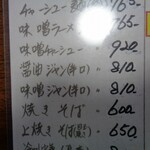 チャーシュー 765-
味噌ラーメン 765-
味噌チャーシュー 920-
醤油ジャン(辛口) 810-
味噌ジャン(辛口) 810-
焼きそば 600-
上焼きそば 650-